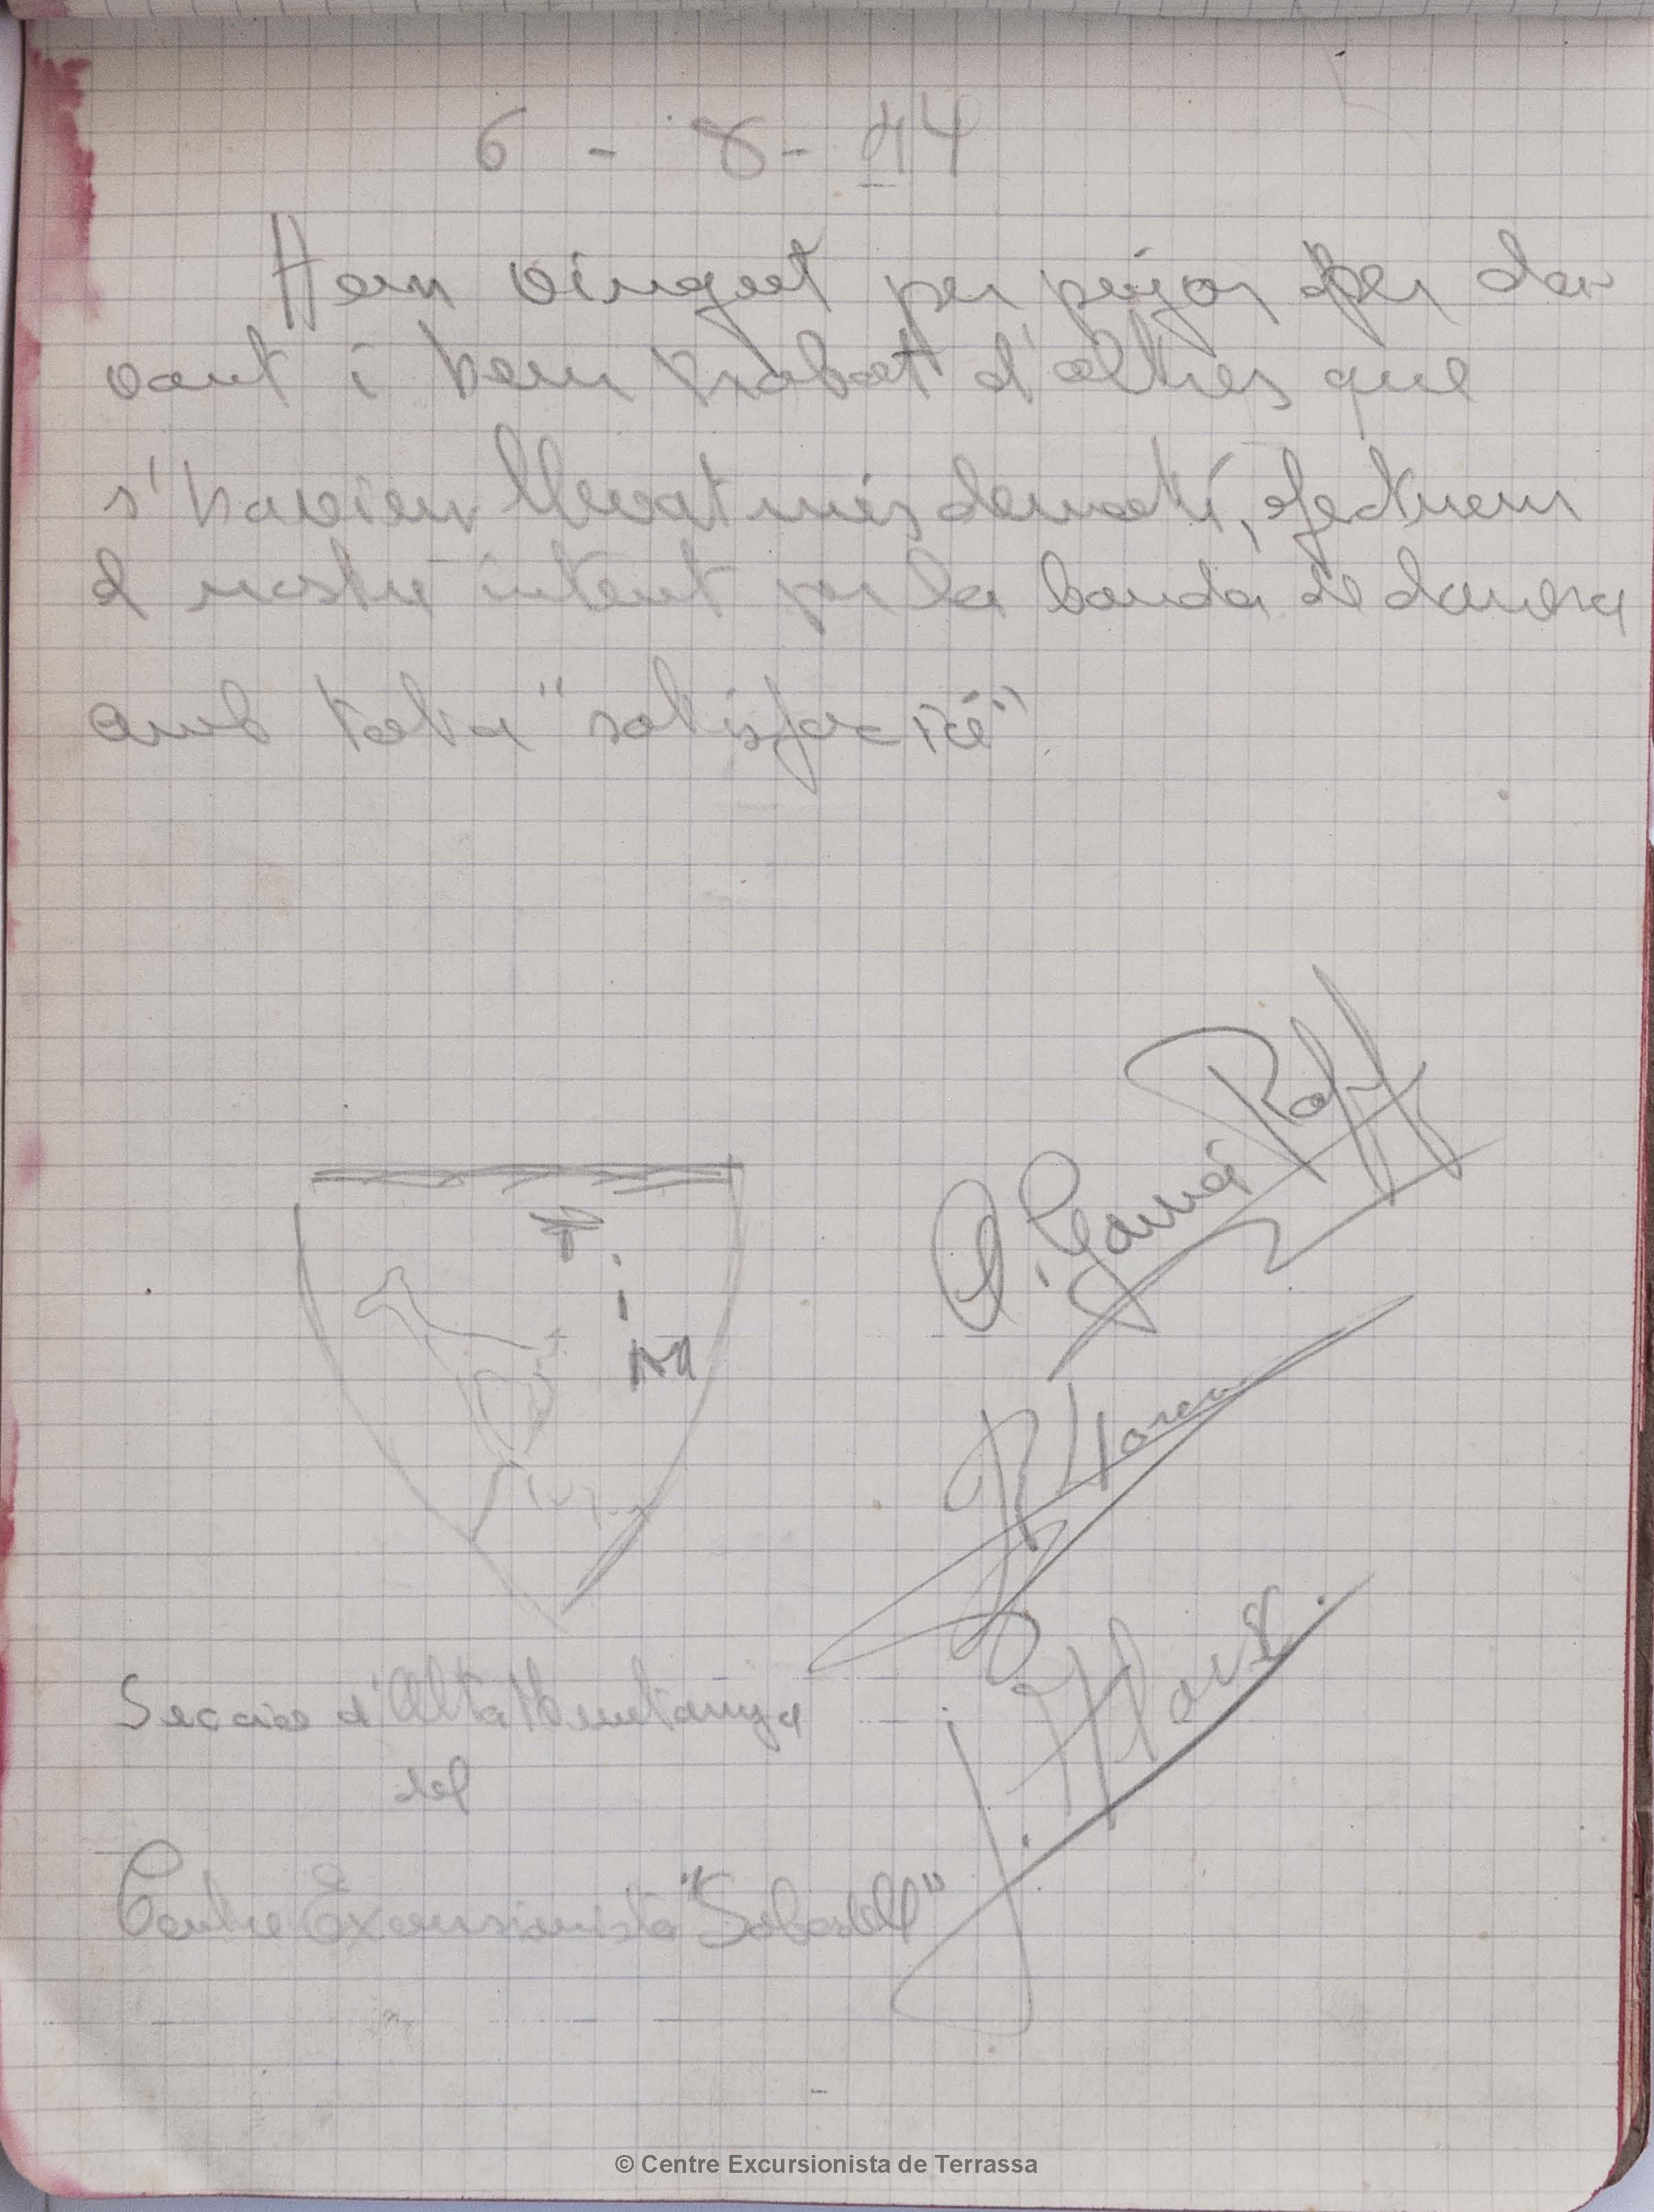 6 - 8 - 44
Hem vingut per pujar per da-
vant i hem trobat d'altres que
s'havien llevat més demati, efectuem
el nostre intent per la banda de darrera
amb tota "satisfacció".
Seccio d'Alta Muntanya
del
Centre Excursionista "Sabadell"
© Centre Excursionista de Terrassa